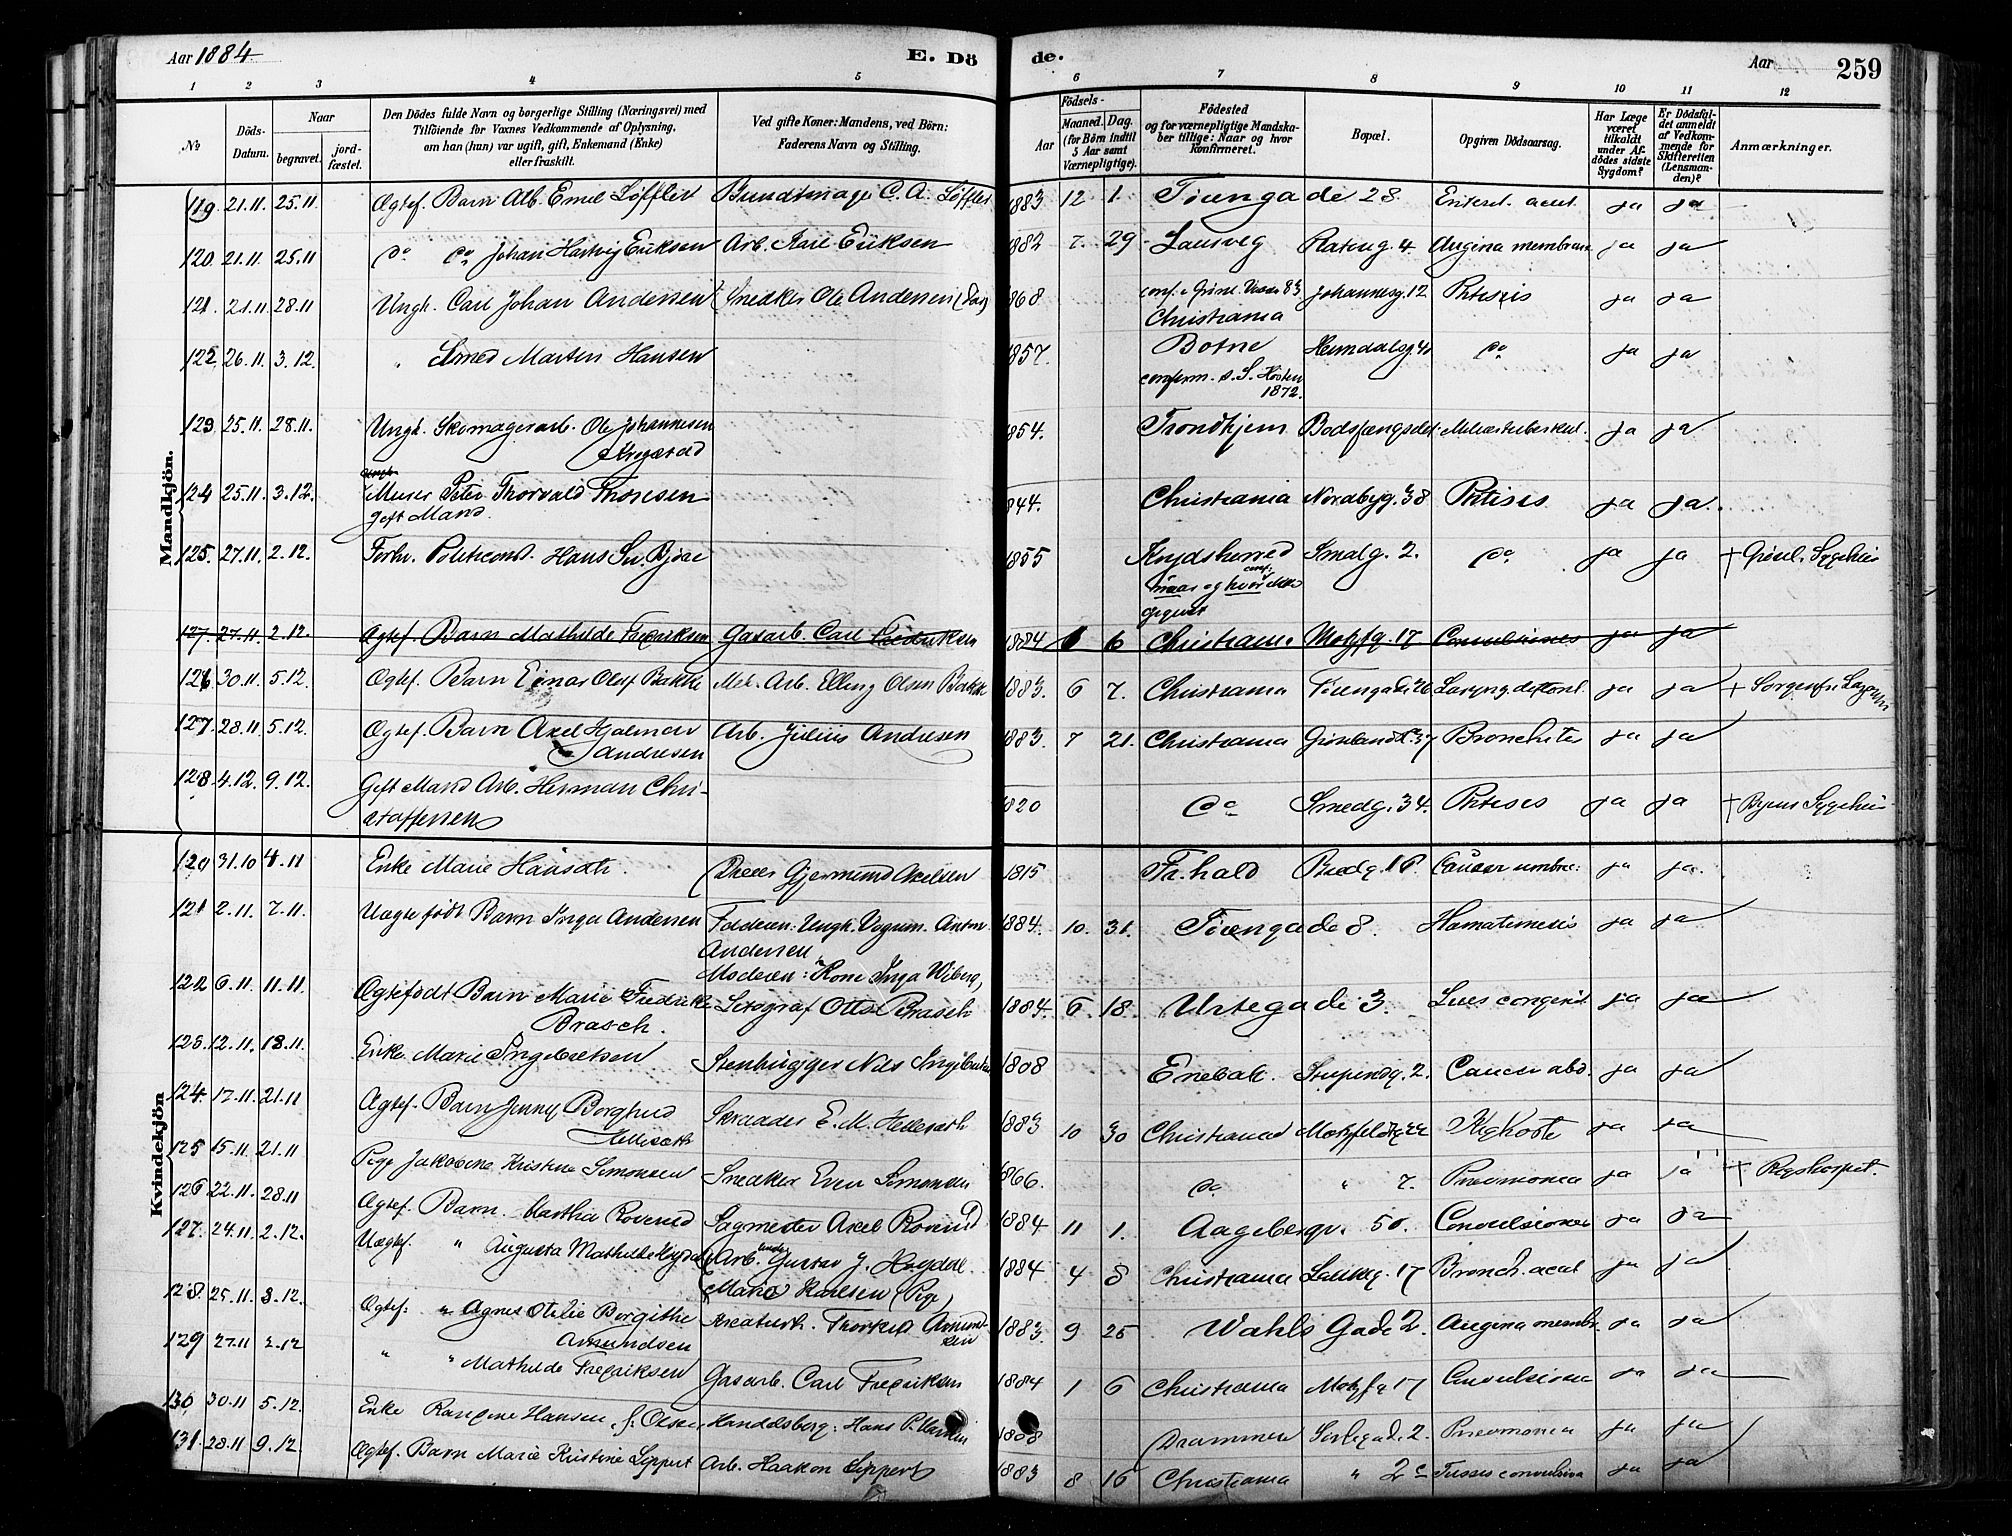 Aar 1884
E. Dö
de.
Aar
259
1 2 3 4 5 6 7 8 9 10 11 12
No
Döds-Datum.
Naar
begravet.
jord-fæstet.
Den Dödes fulde Navn og borgerlige Stilling (Næringsvei) med
Tilföiende for Voxnes Vedkommende af Oplysning,
om han (hun) var ugift, gift, Enkemand (Enke)
eller fraskilt.
Ved gifte Koner: Mandens, ved Börn:
Faderens Navn og Stilling.
Födsels-
Aar
Maaned. Dag.
(for Börn indtil
5 Aar samt
Værnepligtige).
Födested
og for værnepligtige Mandska-
ber tillige: Naar og hvor
konfirmeret.
Bopæl.
Opgiven Dödsaarsag.
Har Læge
været
tilkaldt
under Af-
dödes sidste
Sygdom?
Er Dödsfal-
det anmeldt
af Vedkom-
mende for
Skifteretten
(Lensman-
den)?
Anmærkninger.
Mandkjön.
119. 21.11. 25.11. Ægtef. Barn Alb. Emil Löffler Bundtmager C. A. Löffler 1883 12 1. Töiengade 28. Enterit. acut. ja ja
120. 21.11. 25.11 do do Johan Hartvig Eriksen Arb. Karl Eriksen 1882 7. 29 Laurvig Platoug. 4 Angina membran ja ja
121. 21.11 28.11 Ungk. Carl Johan Andersen Snedker Ole Andersen (Far) 1868 conf. i Grönl. 83 Christiania Johannesg. 12 Phtisis ja ja
122. 26.11. 3.12. " Smed Martin Hansen 1857. Botne Heimdalsg. do ja ja
conferm. s. S. Hösten
1872.
123 25.11. 28.11. Ungk. Skomagerarb. Ole Johannesen 1854. Trondhjem Bodsfængslet Miliærtuberkul. ja ja
124 25.11. 3.12. Murer Peter Thorvald Thoresen 1844. Christiania Nordbyg. 38 Phtisis ja ja.
gift Mand.
125. 27.11. 2.12. Forhv. Politiconst. Hans Björe 1855 Smalg. 2. do ja ja + Grönl. Sygehus
naar og hvor conf. ikke
opgivet
127. 27.11 2.12. Ægtef. Barn Mathilde Fredriksen Gasarb. Carl Fredriksen 1884 6 Christiania Motzfg. 17 Convulsiones ja ja
126 30.11. 5.12. Ægtef. Barn Einar Olaf Bakke Mek. Arb. Elling Olsen Bakke 1883. 6 7. Christiania Töiengade 26 ja ja + Sorgenfri
127. 28.11 5.12. Ægtef. Barn Axel Hjalmar Arb. Julius Andresen 1883. 7 21. Christiania Grönland 37 Bronchite ja ja
Andresen
128. 4.12. 9.12. Gift Mand Arb. Herman Chri- 1820 do Smedg. 34. Phtisis ja ja + Byens Sygehus
stoffersen
Kvindekjön
120 31.10 4.11 Enke Marie Gjermund Axelsen 1815 Fr.hald Bredg. 16. Cancer ja ja.
121 2.11. 7.11. Uægtefödt Barn Inga Andersen Faderen: Ungk. Anton 1884. 10. 31. Töiengade 8. Hæmatemesis ja ja
Andersen
Moderen: Kone Inga Wiberg,
122 6.11 11.11 Ægtefödt Barn Marie Fredrikke Litograf Otto Brasch 1884. 6. 18. Urtegade 3. Lues congenit. ja ja
Brasch.
123. 12.11. 18.11. Enke Marie Ingebretsen Stenhugger Nils Ingebretsen 1808 Enebak. Stupindg. 2. Cancer abd. ja ja
124. 17.11 21.11 Ægtef. Barn Jenny Borghild Skrædder E. M. 1883 10 30 Christiania Motzfeldtg 22 Kighoste ja ja
125 15.11. 21.11 Pige Jakobine Kristine Simonsen Snedker Even Simonsen 1866. do " 7. Pneumonia ja ja + Rigshospit.
126 22.11. 28.11 Ægtef. Barn. Martha Sagmester Axel 1884 11 1. Aagebergv. 50. Convulsioner ja ja
127. 24.11 2.12. Uægtef. " Augusta Mathilde Arb. Gustav J. 1884 4 8 Christiania 17 Bronch. acut ja ja
Marie Karlsen (Pige)
128. 25.11. 3.12. Ægtef: " Agnes Otilie Borgithe Kreaturh. Thorkild Amund- 1883. 9 25 Wahls Gade 2. Angina membr. ja ja
Amundsen sen
129 27.11 2.12 " " Mathilde Fredriksen Gasarb. Carl Fredriksen 1884 1 6 Christiania Motzfg 17 Convulsioner ja ja
130 30.11 5.12. Enke Hansen f. Olsen Handelsberg: Hans P. Hansen 1808 Drammen 2. Pneumonia ja ja
131. 28.11 9.12 Ægtef. Barn Marie Kristine Lippert Arb. Haakon Lippert 1883 8 16 Christiania " 2c Tussis convulsiva ja ja